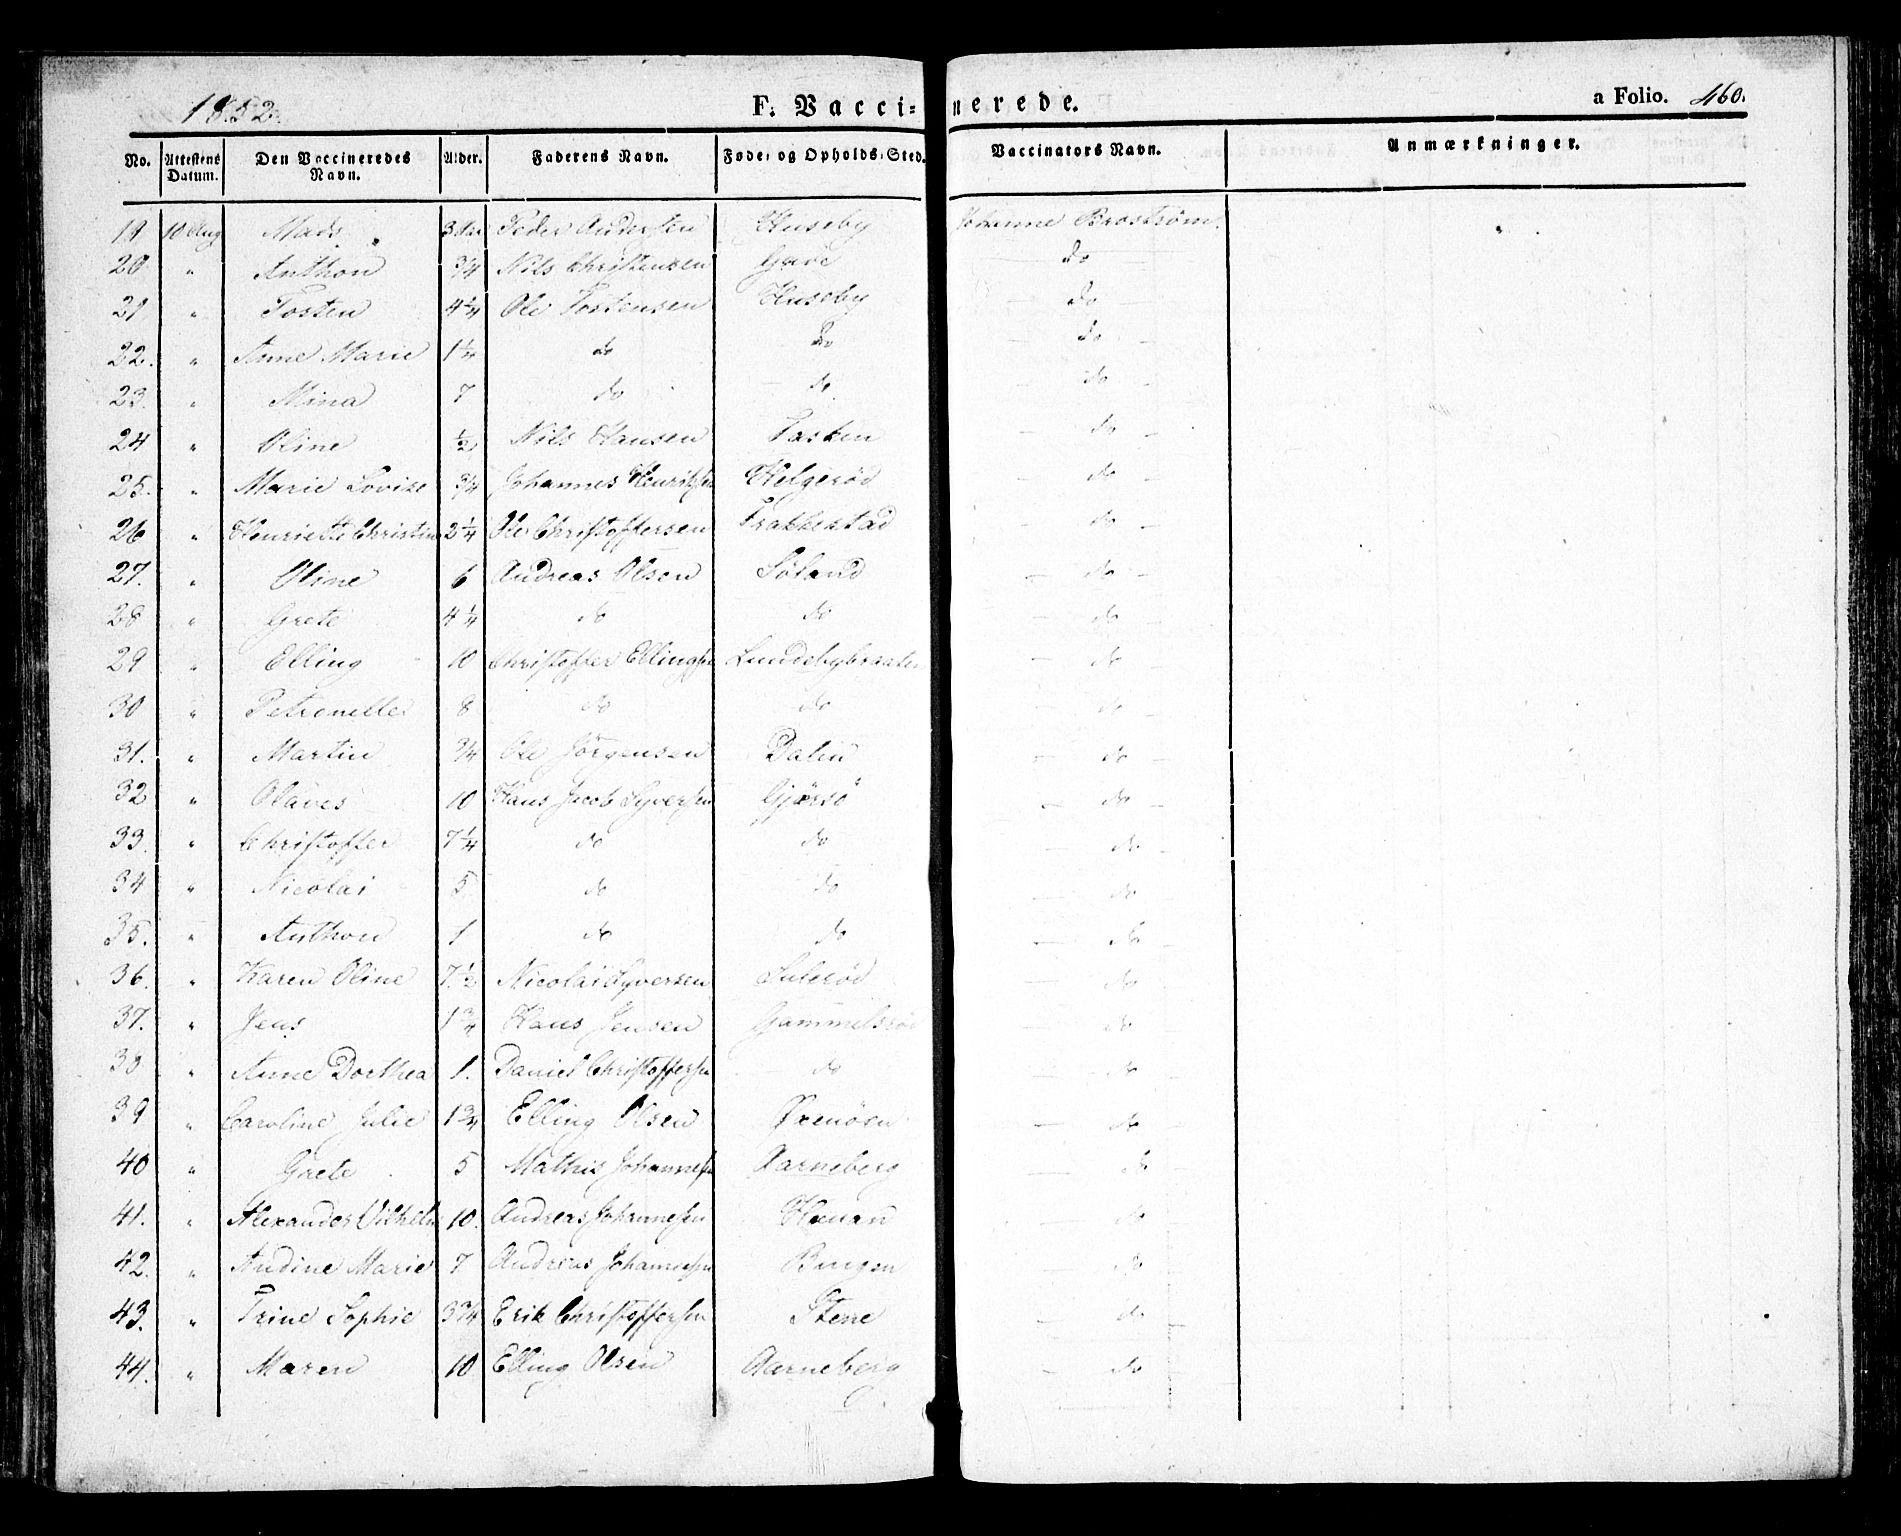 1852. F. Vaccinerede. a Folio. 460.
No. Attestens Datum. Den Vaccineredes Navn. Alder. Faderens Navn. Føde- og Opholds-Sted. Vaccinators Navn. Anmærkninger.
19 10 Aug Mads 3 Peder Andersen Huseby Johanne Broström.
20 " Anthon 3/4 Nils Christensen do
21 " Tosten 4 1/4 Ole Tostensen Huseby do
22. " Anne Marie 1 1/4 do do do
23. " Mina 7 do do do
24 " Oline 1/2 Nils Hansen do
25. " Marie Lovise 3/4 Johannes Henriksen Helgerød do
26 " Henriette Christine 2 1/4 Ole Christoffersen Frakkestad do
27. " Oline 6 Andreas Olsen Søland do
28 " Grete 4 1/4 do do do
29 " Elling 10 Christoffer Ellingsen Lundebybraaten do
30 " Petronelle 8 do do do
31. " Martin 3/4 Ole Jörgensen Dalen do
32 " Olaves 10 Hans Jacob Syversen do
33. " Christoffer 7 1/4 do do do
34 " Nicolai 5 do do do
35. " Anthon 1 do do do
36. " Karen Oline 7 1/2 Nicolai Syversen do
37. " Jens 1 3/4 Hans Jensen Gammelsrød do
38 " Anne Dorthea 1. Daniel Christoffersen do do
39 " Caroline Julie 1 3/4 Elling Olsen Øxenösen do
40 " Grete 5 Mathis Johannesen Aarneberg do
41. " Alexander Vilhelm 10. Andreas Johannesen do
42. " Andine Marie 7 Andreas Johannesen do
43. " Trine Sophie 3 3/4 Erik Christoffersen Stene do
44. " Maren 10 Elling Olsen Aarneberg do